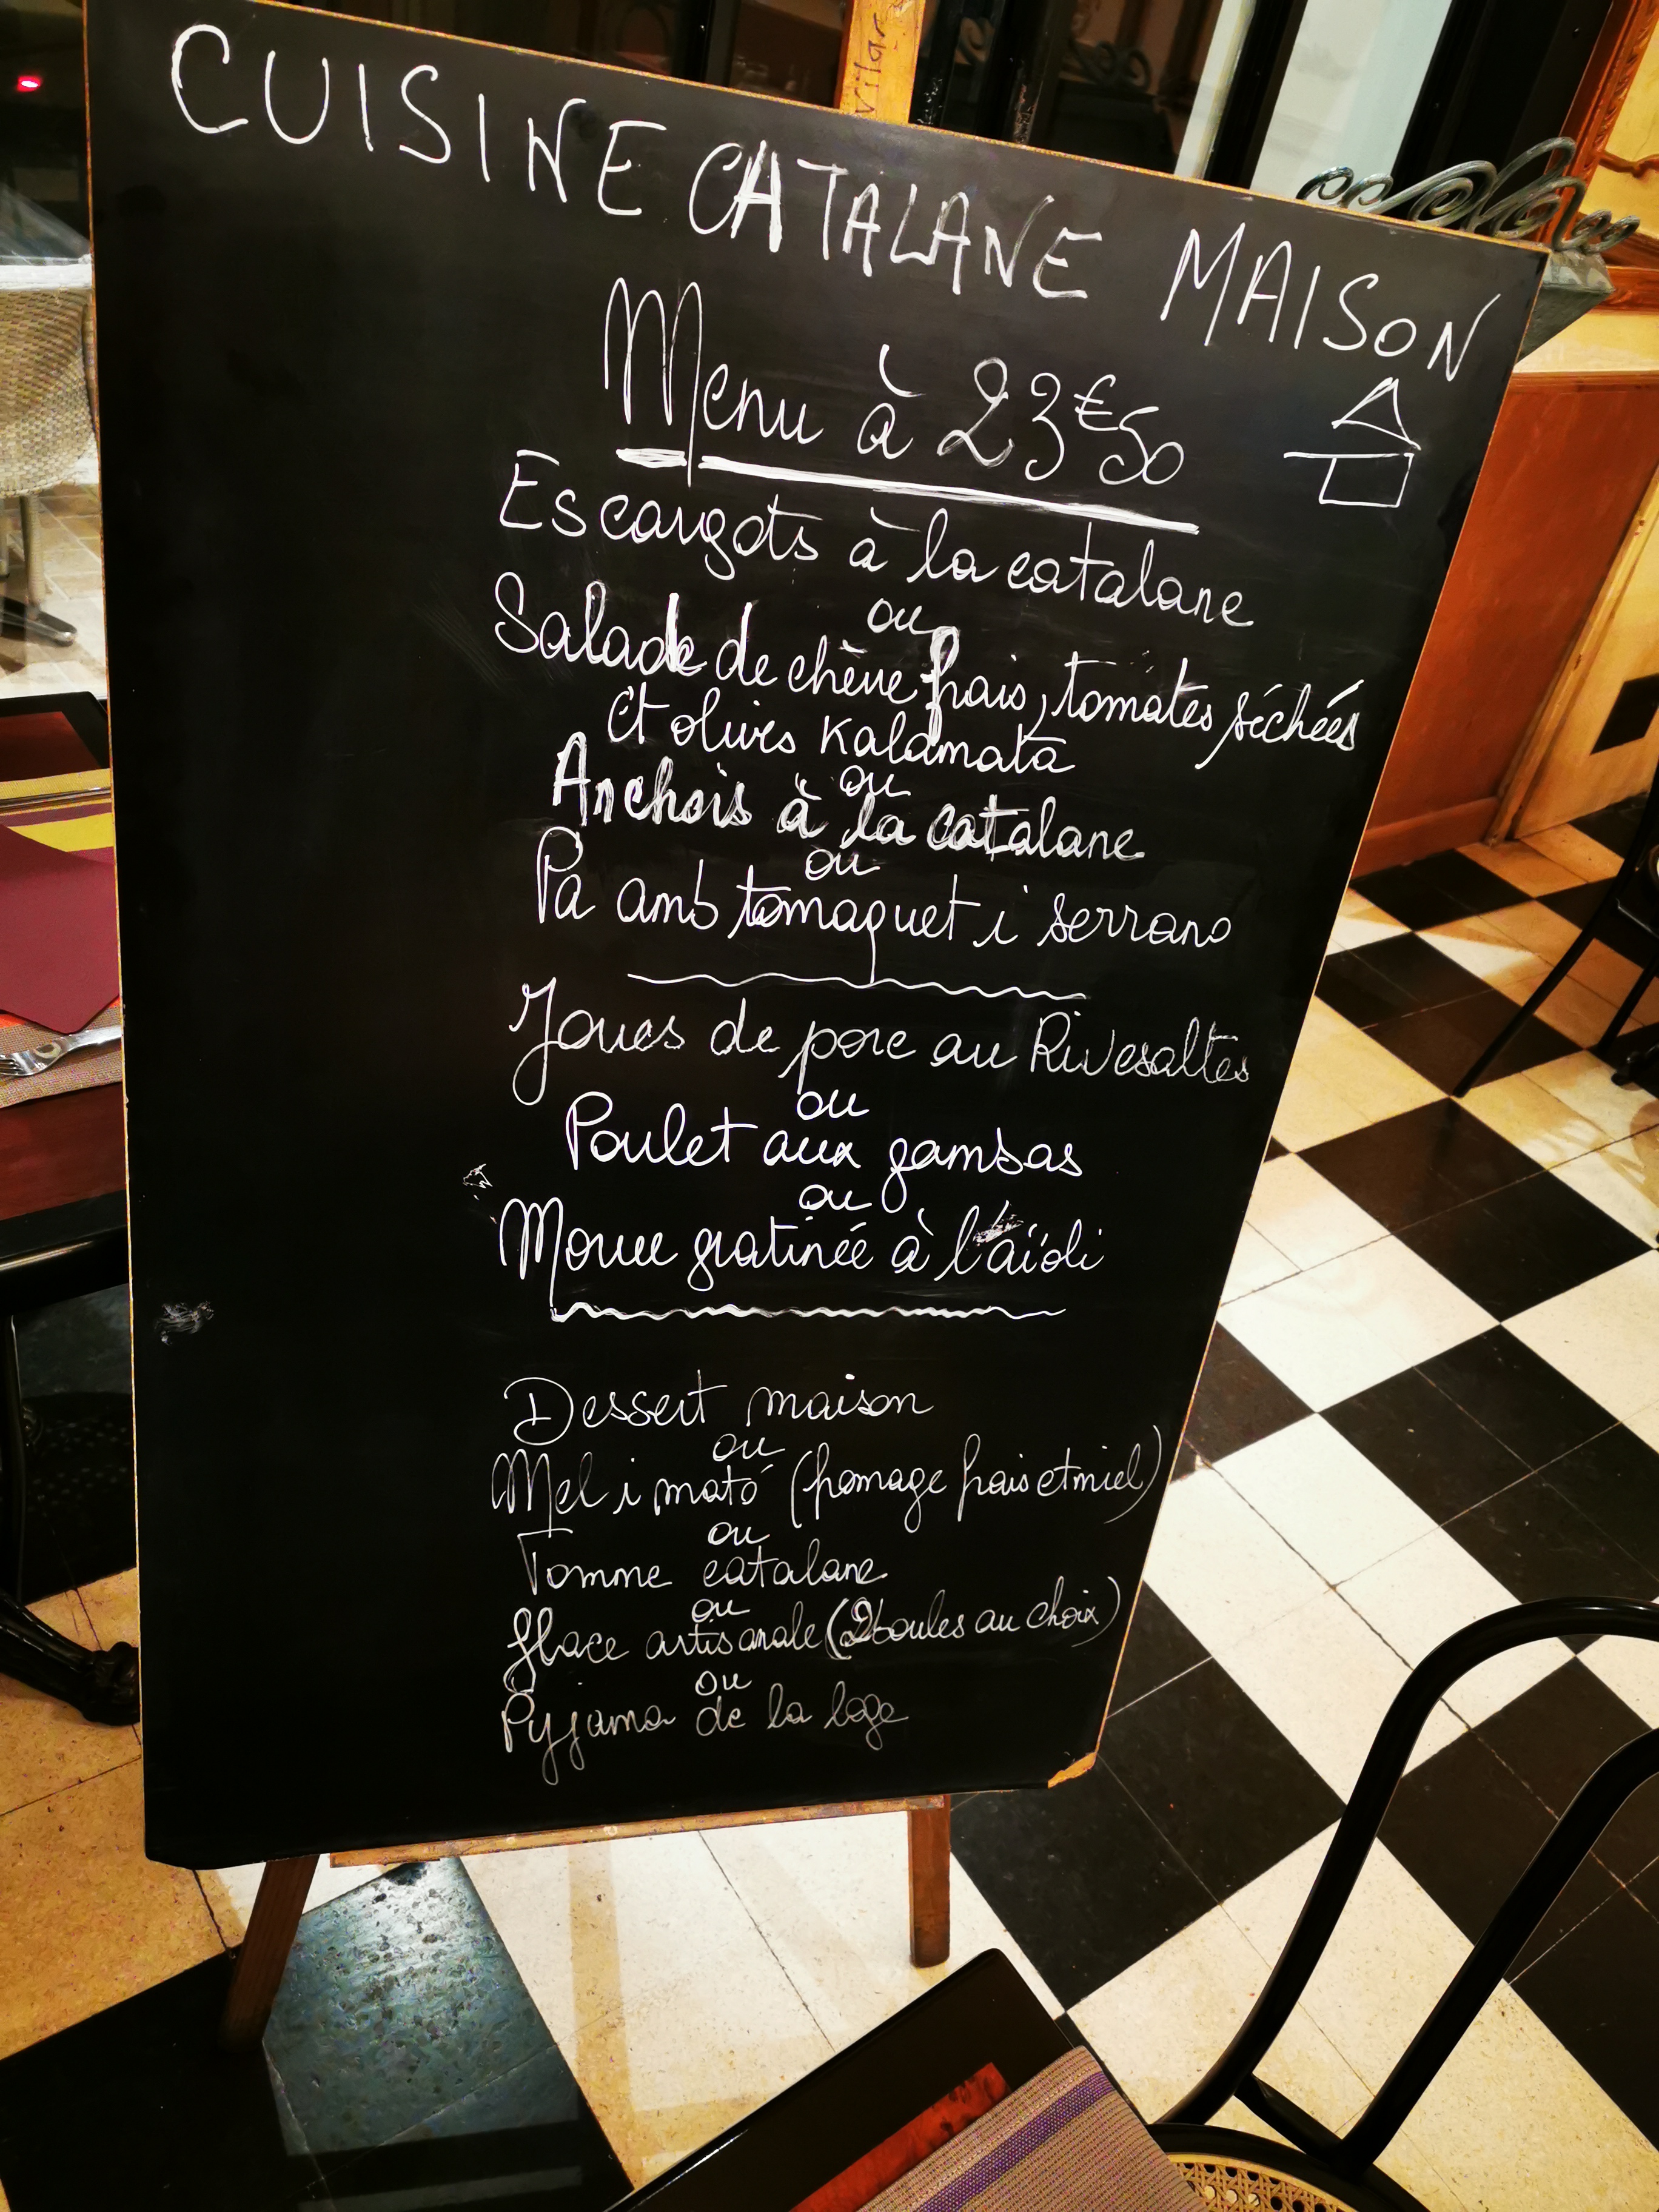 vilar
CUISINE CATALANE MAISON
Menu à 23€50
Escargots à la catalane
ou
Salade de chèvre frais, tomates séchées
Et olives Kalamata
ou
Anchois à la catalane
ou
Pa amb tomaquet i serrano
Joues de porc au Rivesaltes
ou
Poulet aux gambas
ou
Morue gratinée à l'aïoli
Dessert maison
ou
Mel i mató (fromage frais et miel)
ou
Tomme catalane
ou
Glace artisanale (2 boules au choix)
ou
Pyjama de la loge